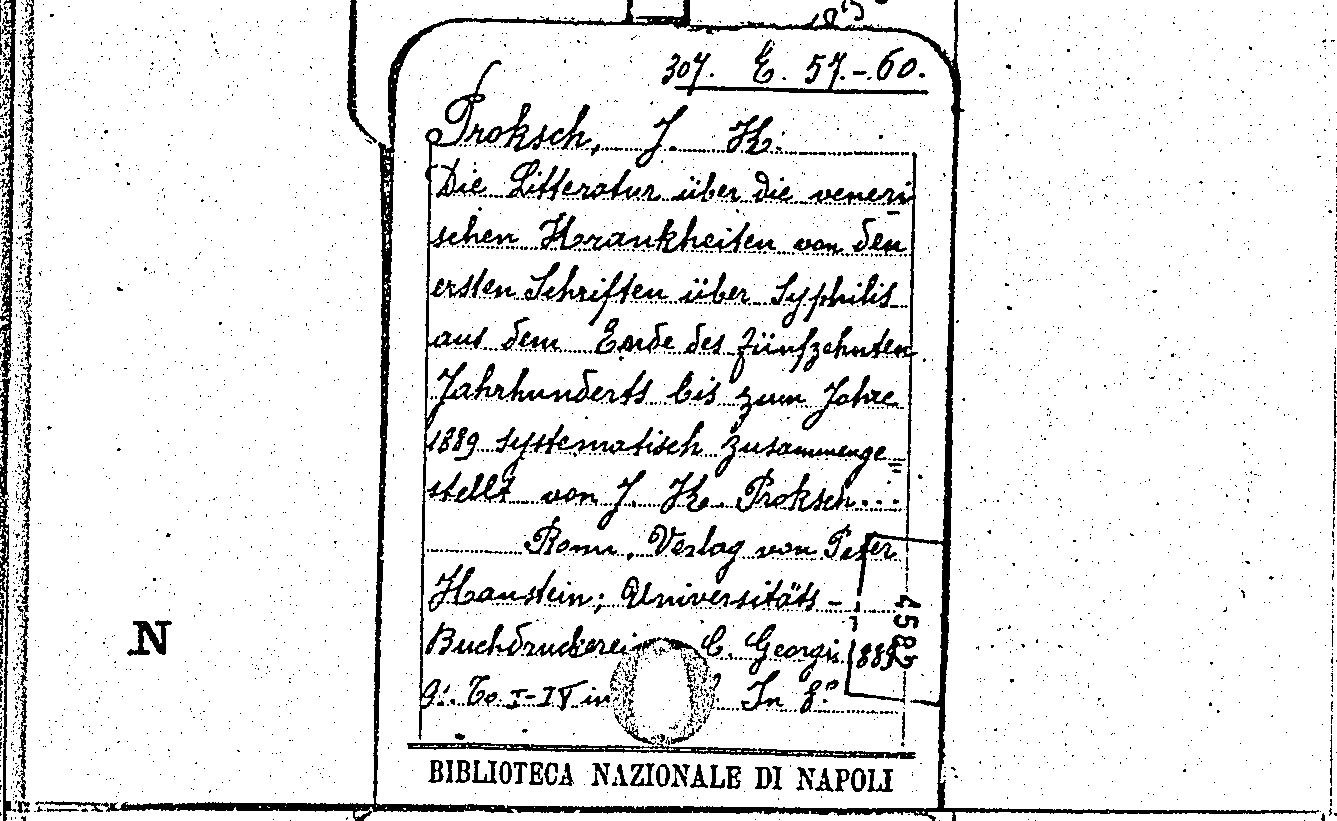 307. E. 57.-60.
Proksch, J. K.
Die Litteratur über die veneri
schen Krankheiten von den
ersten Schriften über Syphilis
aus dem Ende des fünfzehnten
Jahrhunderts bis zum Jahre
1889 systematisch zusammenge=
stellt von J. K. Proksch...
Bonn, Verlag von Peter
Hanstein; Universitäts-
Buchdruckerei C. Georgi, 1889
9'. To I-IV in In 8.º
4582
N
BIBLIOTECA NAZIONALE DI NAPOLI